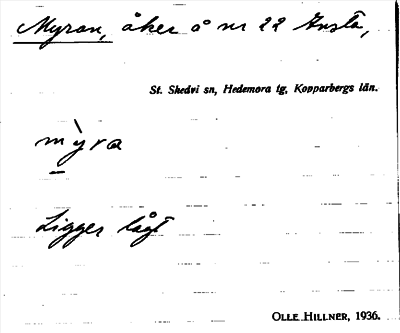 Myran, åker å nr 22 Ansta,
St. Skedvi sn, Hedemora tg, Kopparbergs län.
mỳra
Ligger lågt
OLLE HILLNER, 1936.